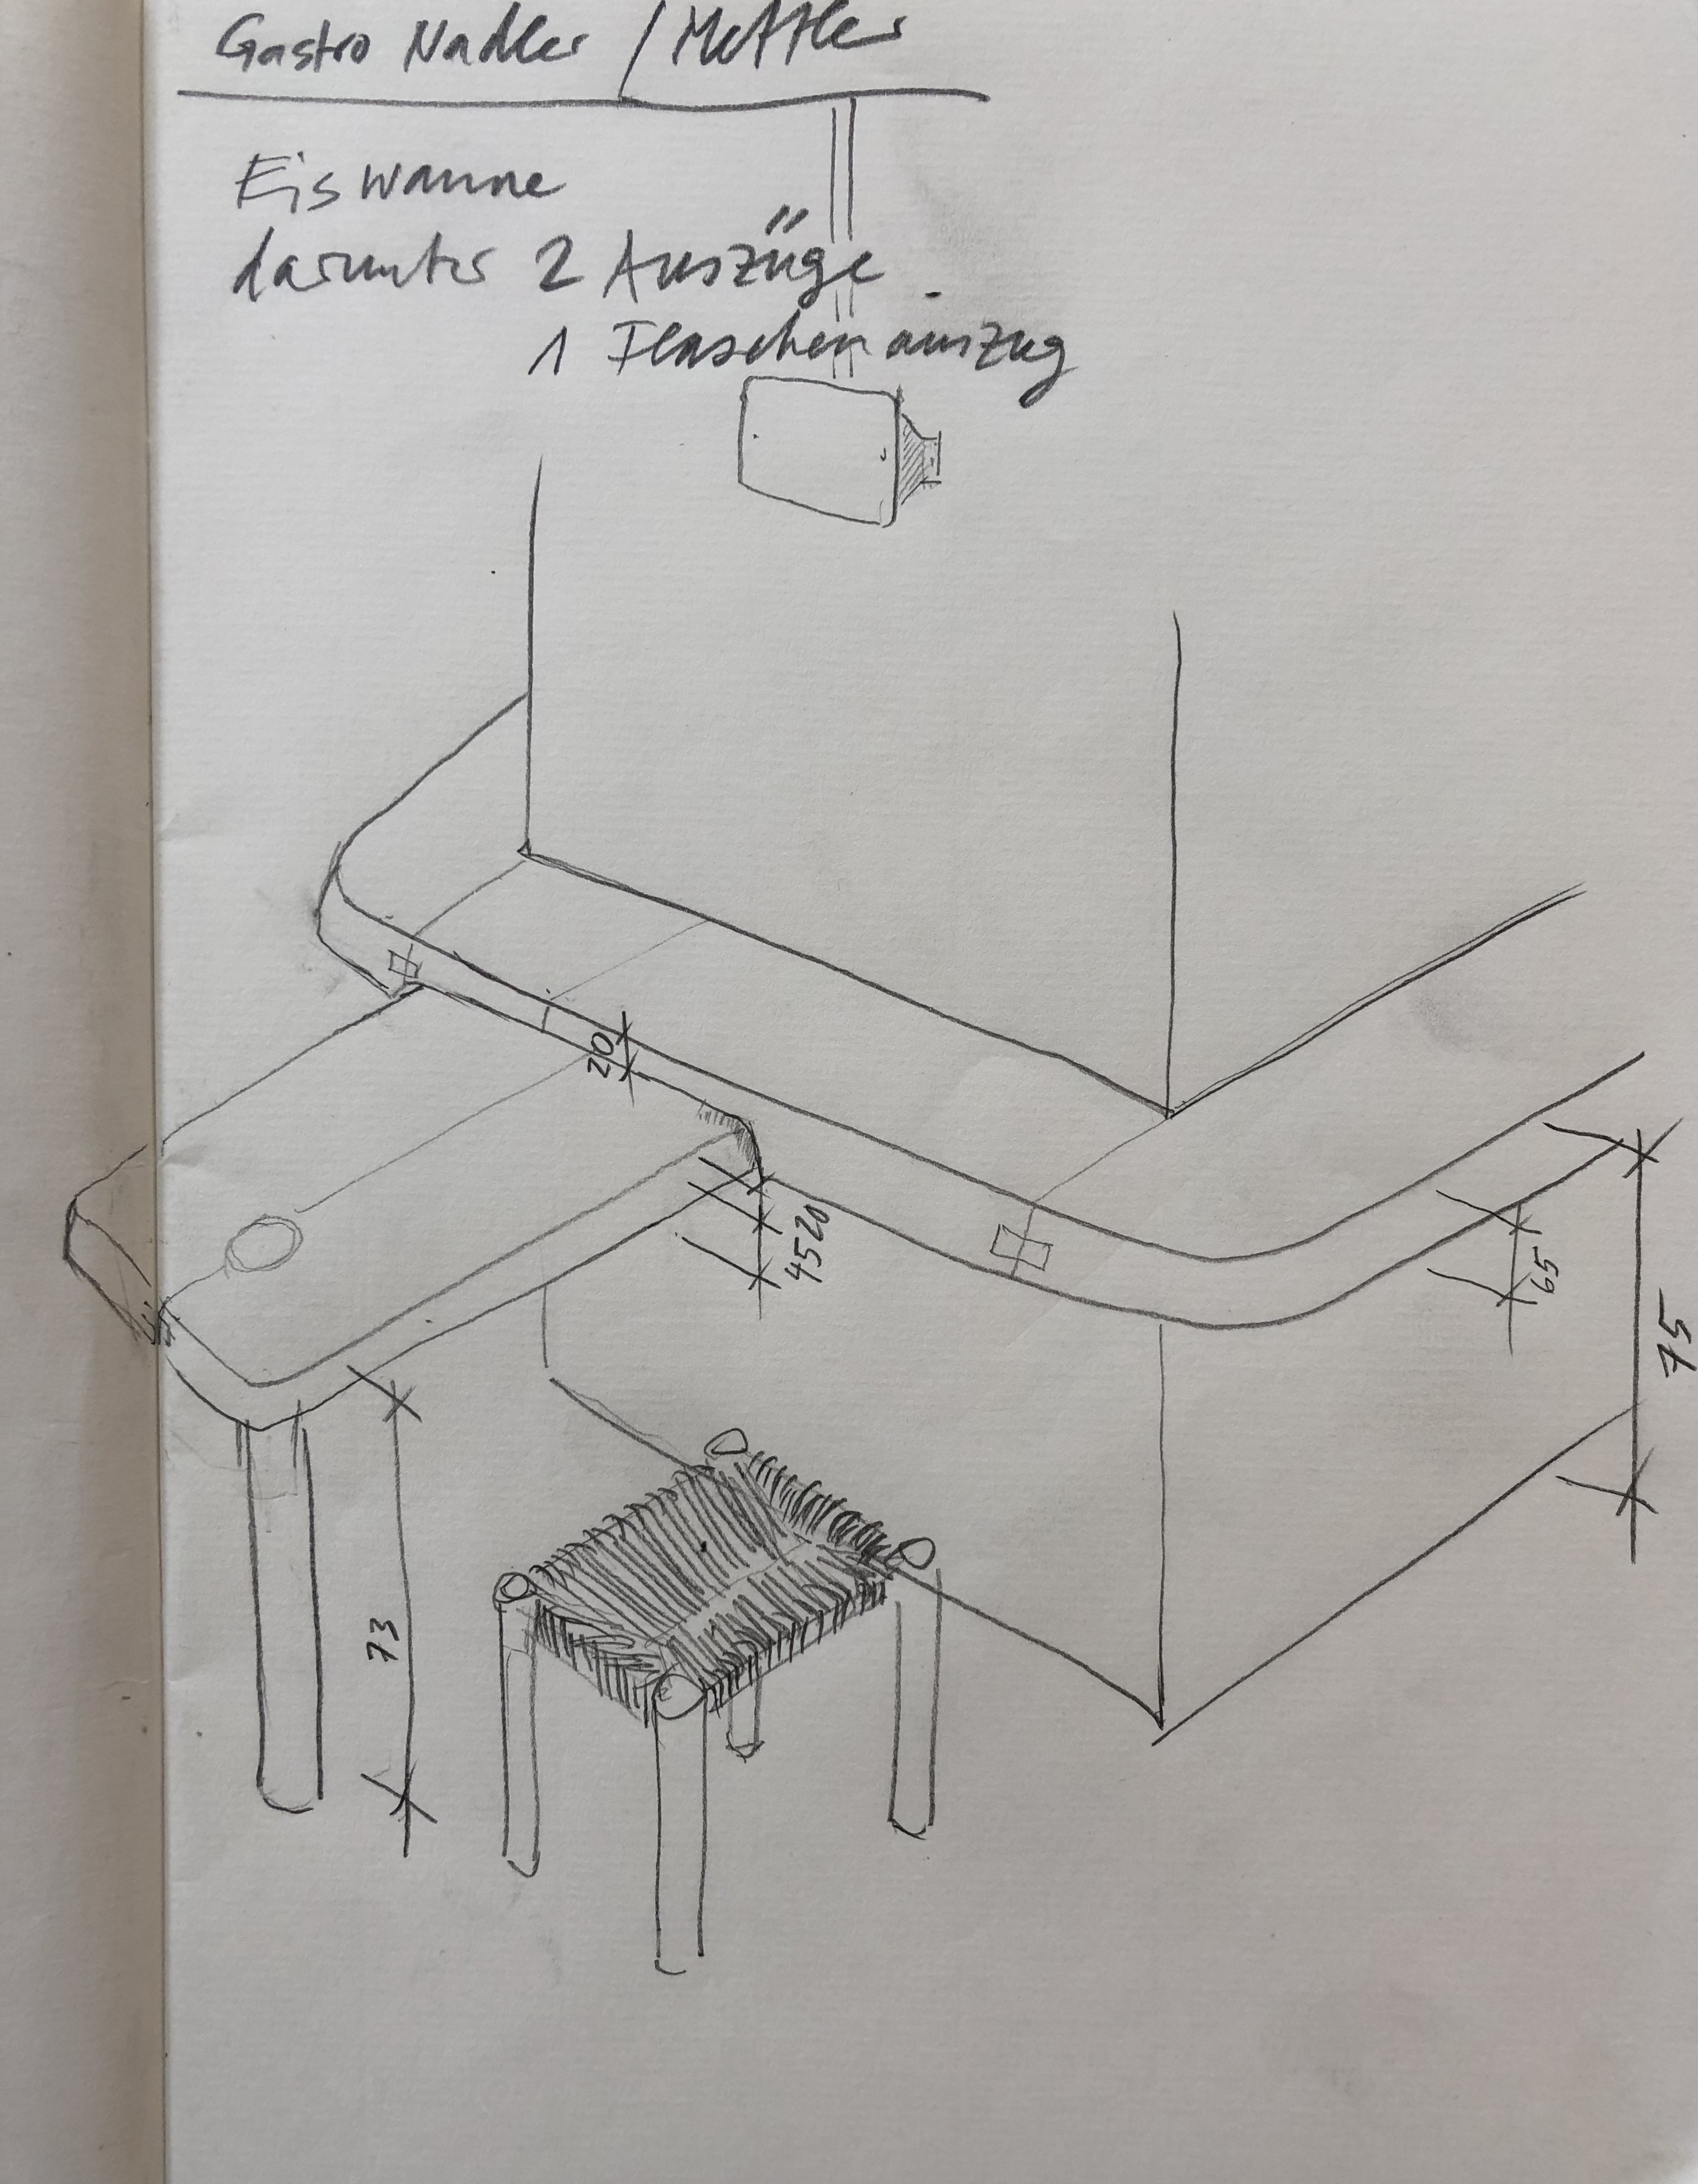 Gastro Nadler / Mettler
Eiswanne
darunter 2 Auszüge
1 Flaschenauszug
20
45 20
65
75
73